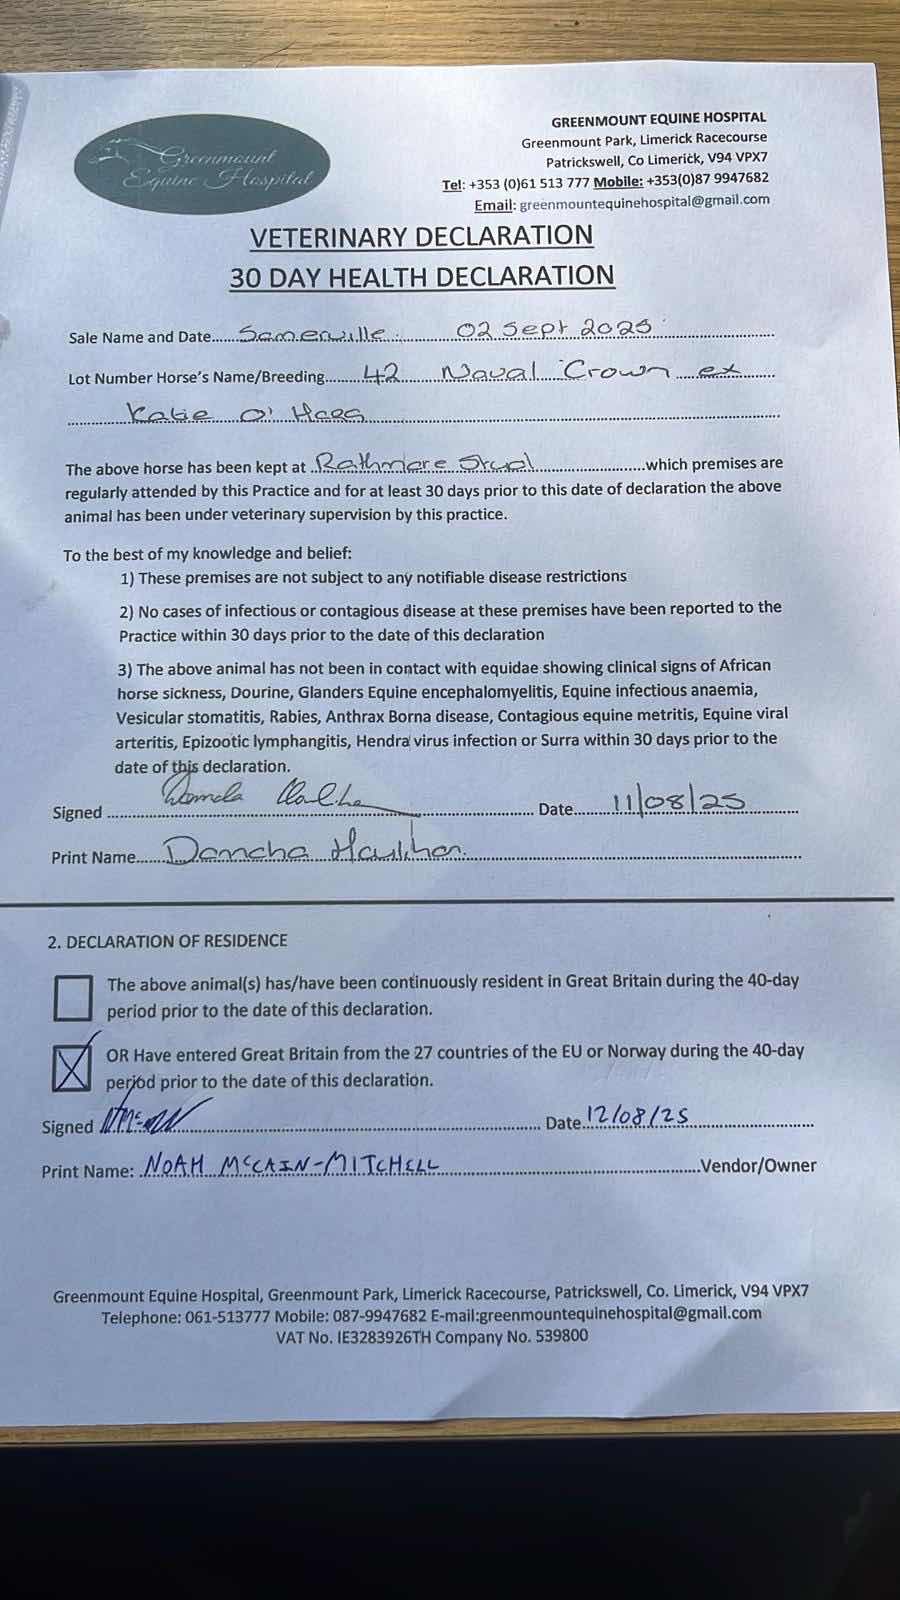 Greenmount
Equine Hospital
GREENMOUNT EQUINE HOSPITAL
Greenmount Park, Limerick Racecourse
Patrickswell, Co Limerick, V94 VPX7
Tel: +353 (0)61 513 777 Mobile: +353(0)87 9947682
Email: greenmountequinehospital@gmail.com
VETERINARY DECLARATION
30 DAY HEALTH DECLARATION
Sale Name and Date...... Somerville 02 Sept 2025
Lot Number Horse's Name/Breeding......... 42 Naval Crown ex
Katie O' Hara
The above horse has been kept at Rathmore Stud which premises are
regularly attended by this Practice and for at least 30 days prior to this date of declaration the above
animal has been under veterinary supervision by this practice.
To the best of my knowledge and belief:
1) These premises are not subject to any notifiable disease restrictions
2) No cases of infectious or contagious disease at these premises have been reported to the
Practice within 30 days prior to the date of this declaration
3) The above animal has not been in contact with equidae showing clinical signs of African
horse sickness, Dourine, Glanders Equine encephalomyelitis, Equine infectious anaemia,
Vesicular stomatitis, Rabies, Anthrax Borna disease, Contagious equine metritis, Equine viral
arteritis, Epizootic lymphangitis, Hendra virus infection or Surra within 30 days prior to the
date of this declaration.
Signed Date 11/08/25
Print Name Doncha Houlihan
2. DECLARATION OF RESIDENCE
The above animal(s) has/have been continuously resident in Great Britain during the 40-day
period prior to the date of this declaration.
OR Have entered Great Britain from the 27 countries of the EU or Norway during the 40-day
period prior to the date of this declaration.
Signed Date 12/08/25
Print Name: NOAH McCAIN-MITCHELL Vendor/Owner
Greenmount Equine Hospital, Greenmount Park, Limerick Racecourse, Patrickswell, Co. Limerick, V94 VPX7
Telephone: 061-513777 Mobile: 087-9947682 E-mail:greenmountequinehospital@gmail.com
VAT No. IE3283926TH Company No. 539800